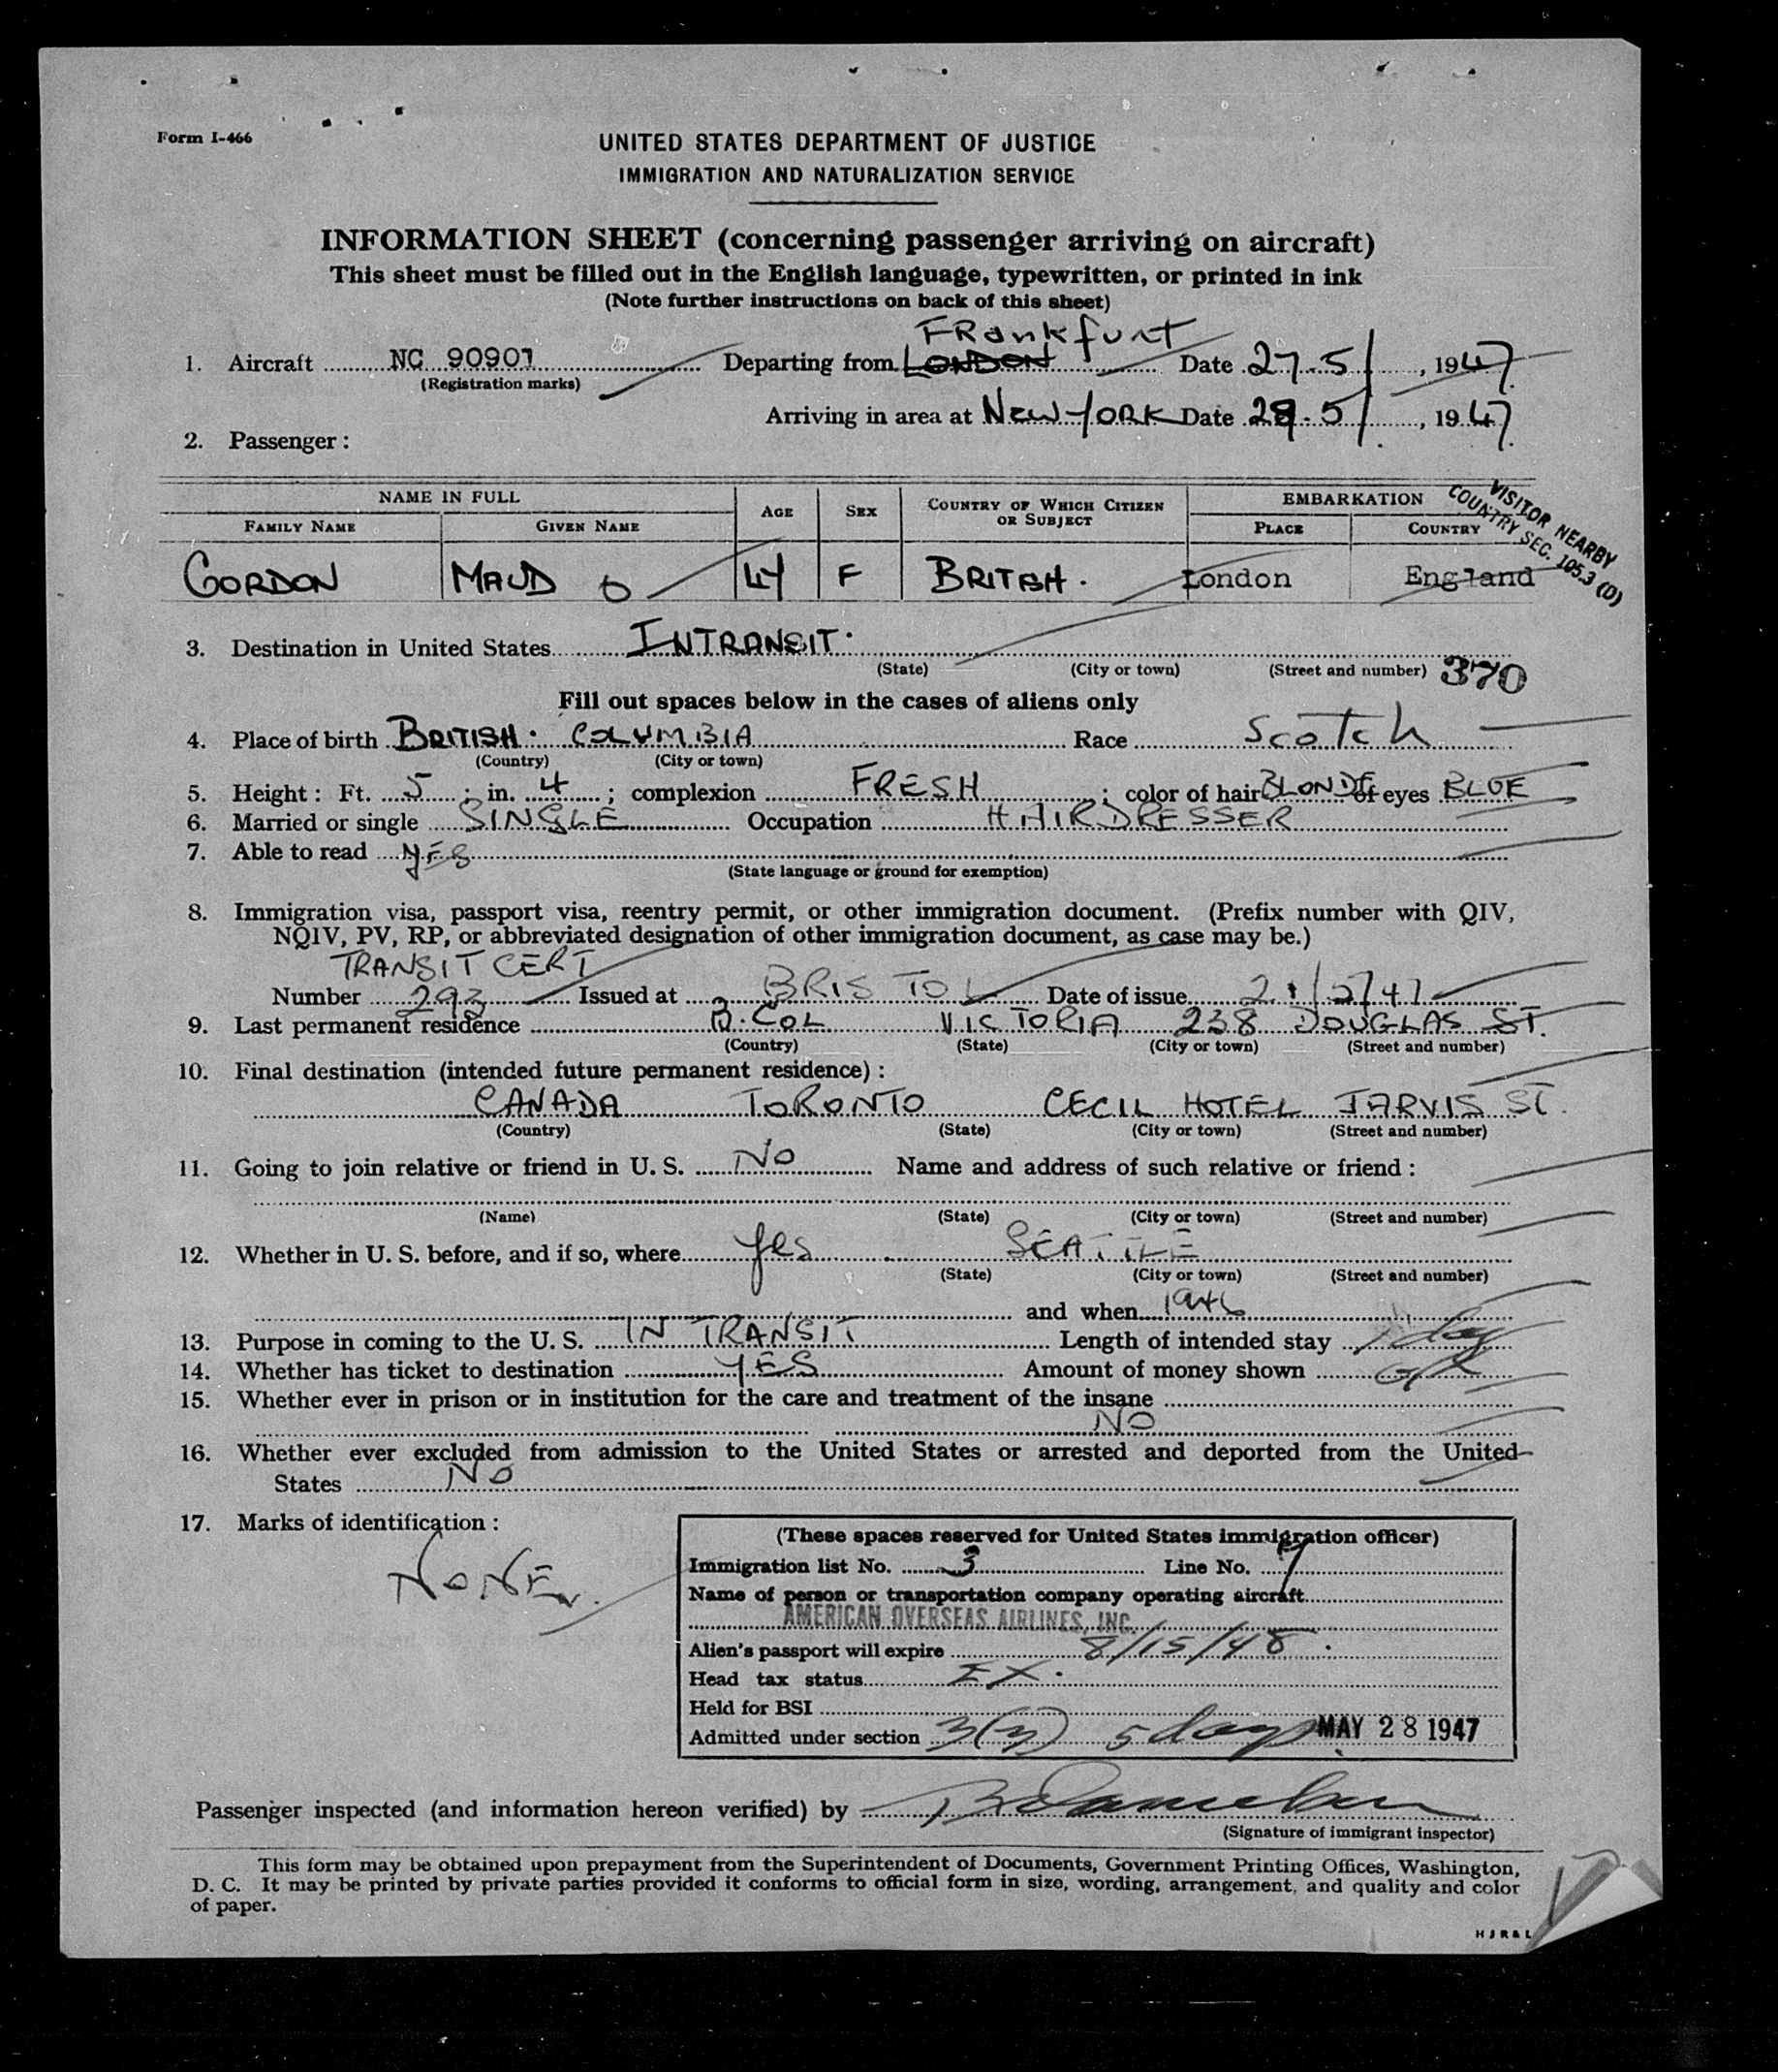 Form I-466
UNITED STATES DEPARTMENT OF JUSTICE
IMMIGRATION AND NATURALIZATION SERVICE
INFORMATION SHEET (concerning passenger arriving on aircraft)
This sheet must be filled out in the English language, typewritten, or printed in ink
(Note further instructions on back of this sheet)
FRankfurt
1. Aircraft NC 90901 Departing from LONDON Date 27.5/, 1947
(Registration marks)
Arriving in area at NEW YORK Date 28.5/, 1947.
2. Passenger:
NAME IN FULL AGE SEX COUNTRY OF WHICH CITIZEN OR SUBJECT EMBARKATION
FAMILY NAME GIVEN NAME PLACE COUNTRY
VISITOR NEARBY
COUNTRY SEC. 105.3 (D)
GORDON MAUD O F BRITISH. London England
3. Destination in United States INTRANSIT.
(State) (City or town) (Street and number) 370
Fill out spaces below in the cases of aliens only
4. Place of birth BRITISH. COLUMBIA Race Scotch
(Country) (City or town)
5. Height: Ft. 5; in. 4; complexion FRESH; color of hair BLONDE of eyes BLUE
6. Married or single SINGLE Occupation HAIRDRESSER
7. Able to read YES
(State language or ground for exemption)
8. Immigration visa, passport visa, reentry permit, or other immigration document. (Prefix number with QIV,
NQIV, PV, RP, or abbreviated designation of other immigration document, as case may be.)
TRANSIT CERT
Number 293 Issued at BRISTOL Date of issue 21/5/47
9. Last permanent residence B.COL VICTORIA 238 DOUGLAS ST.
(Country) (State) (City or town) (Street and number)
10. Final destination (intended future permanent residence):
CANADA TORONTO CECIL HOTEL JARVIS ST.
(Country) (State) (City or town) (Street and number)
11. Going to join relative or friend in U. S. NO Name and address of such relative or friend:
(Name) (State) (City or town) (Street and number)
12. Whether in U. S. before, and if so, where yes SEATTLE
(State) (City or town) (Street and number)
and when 1946
13. Purpose in coming to the U. S. IN TRANSIT Length of intended stay 1 day
14. Whether has ticket to destination YES Amount of money shown
15. Whether ever in prison or in institution for the care and treatment of the insane
NO
16. Whether ever excluded from admission to the United States or arrested and deported from the United
States NO
17. Marks of identification:
NONE.
(These spaces reserved for United States immigration officer)
Immigration list No. 3 Line No.
Name of person or transportation company operating aircraft
AMERICAN OVERSEAS AIRLINES, INC.
Alien's passport will expire 8/15/48.
Head tax status EX.
Held for BSI
Admitted under section 3(3) 5 days MAY 28 1947
Passenger inspected (and information hereon verified) by
(Signature of immigrant inspector)
This form may be obtained upon prepayment from the Superintendent of Documents, Government Printing Offices, Washington,
D. C. It may be printed by private parties provided it conforms to official form in size, wording, arrangement, and quality and color
of paper.
H J R & L